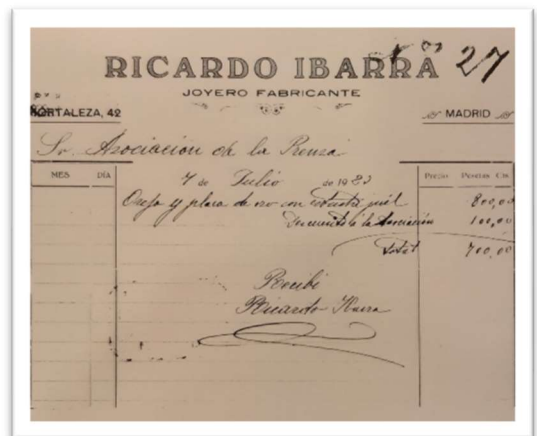 Nº 27
RICARDO IBARRA
JOYERO FABRICANTE
HORTALEZA, 42
MADRID
Sr. Asociacion de la Prensa
MES DÍA Precio Pesetas Cts
7 de Julio de 19
Oreja y placa de oro con estuche piel 800,00
Descuento a la Asociación 100,00
Total 700,00
Recibi
Ricardo Ibarra